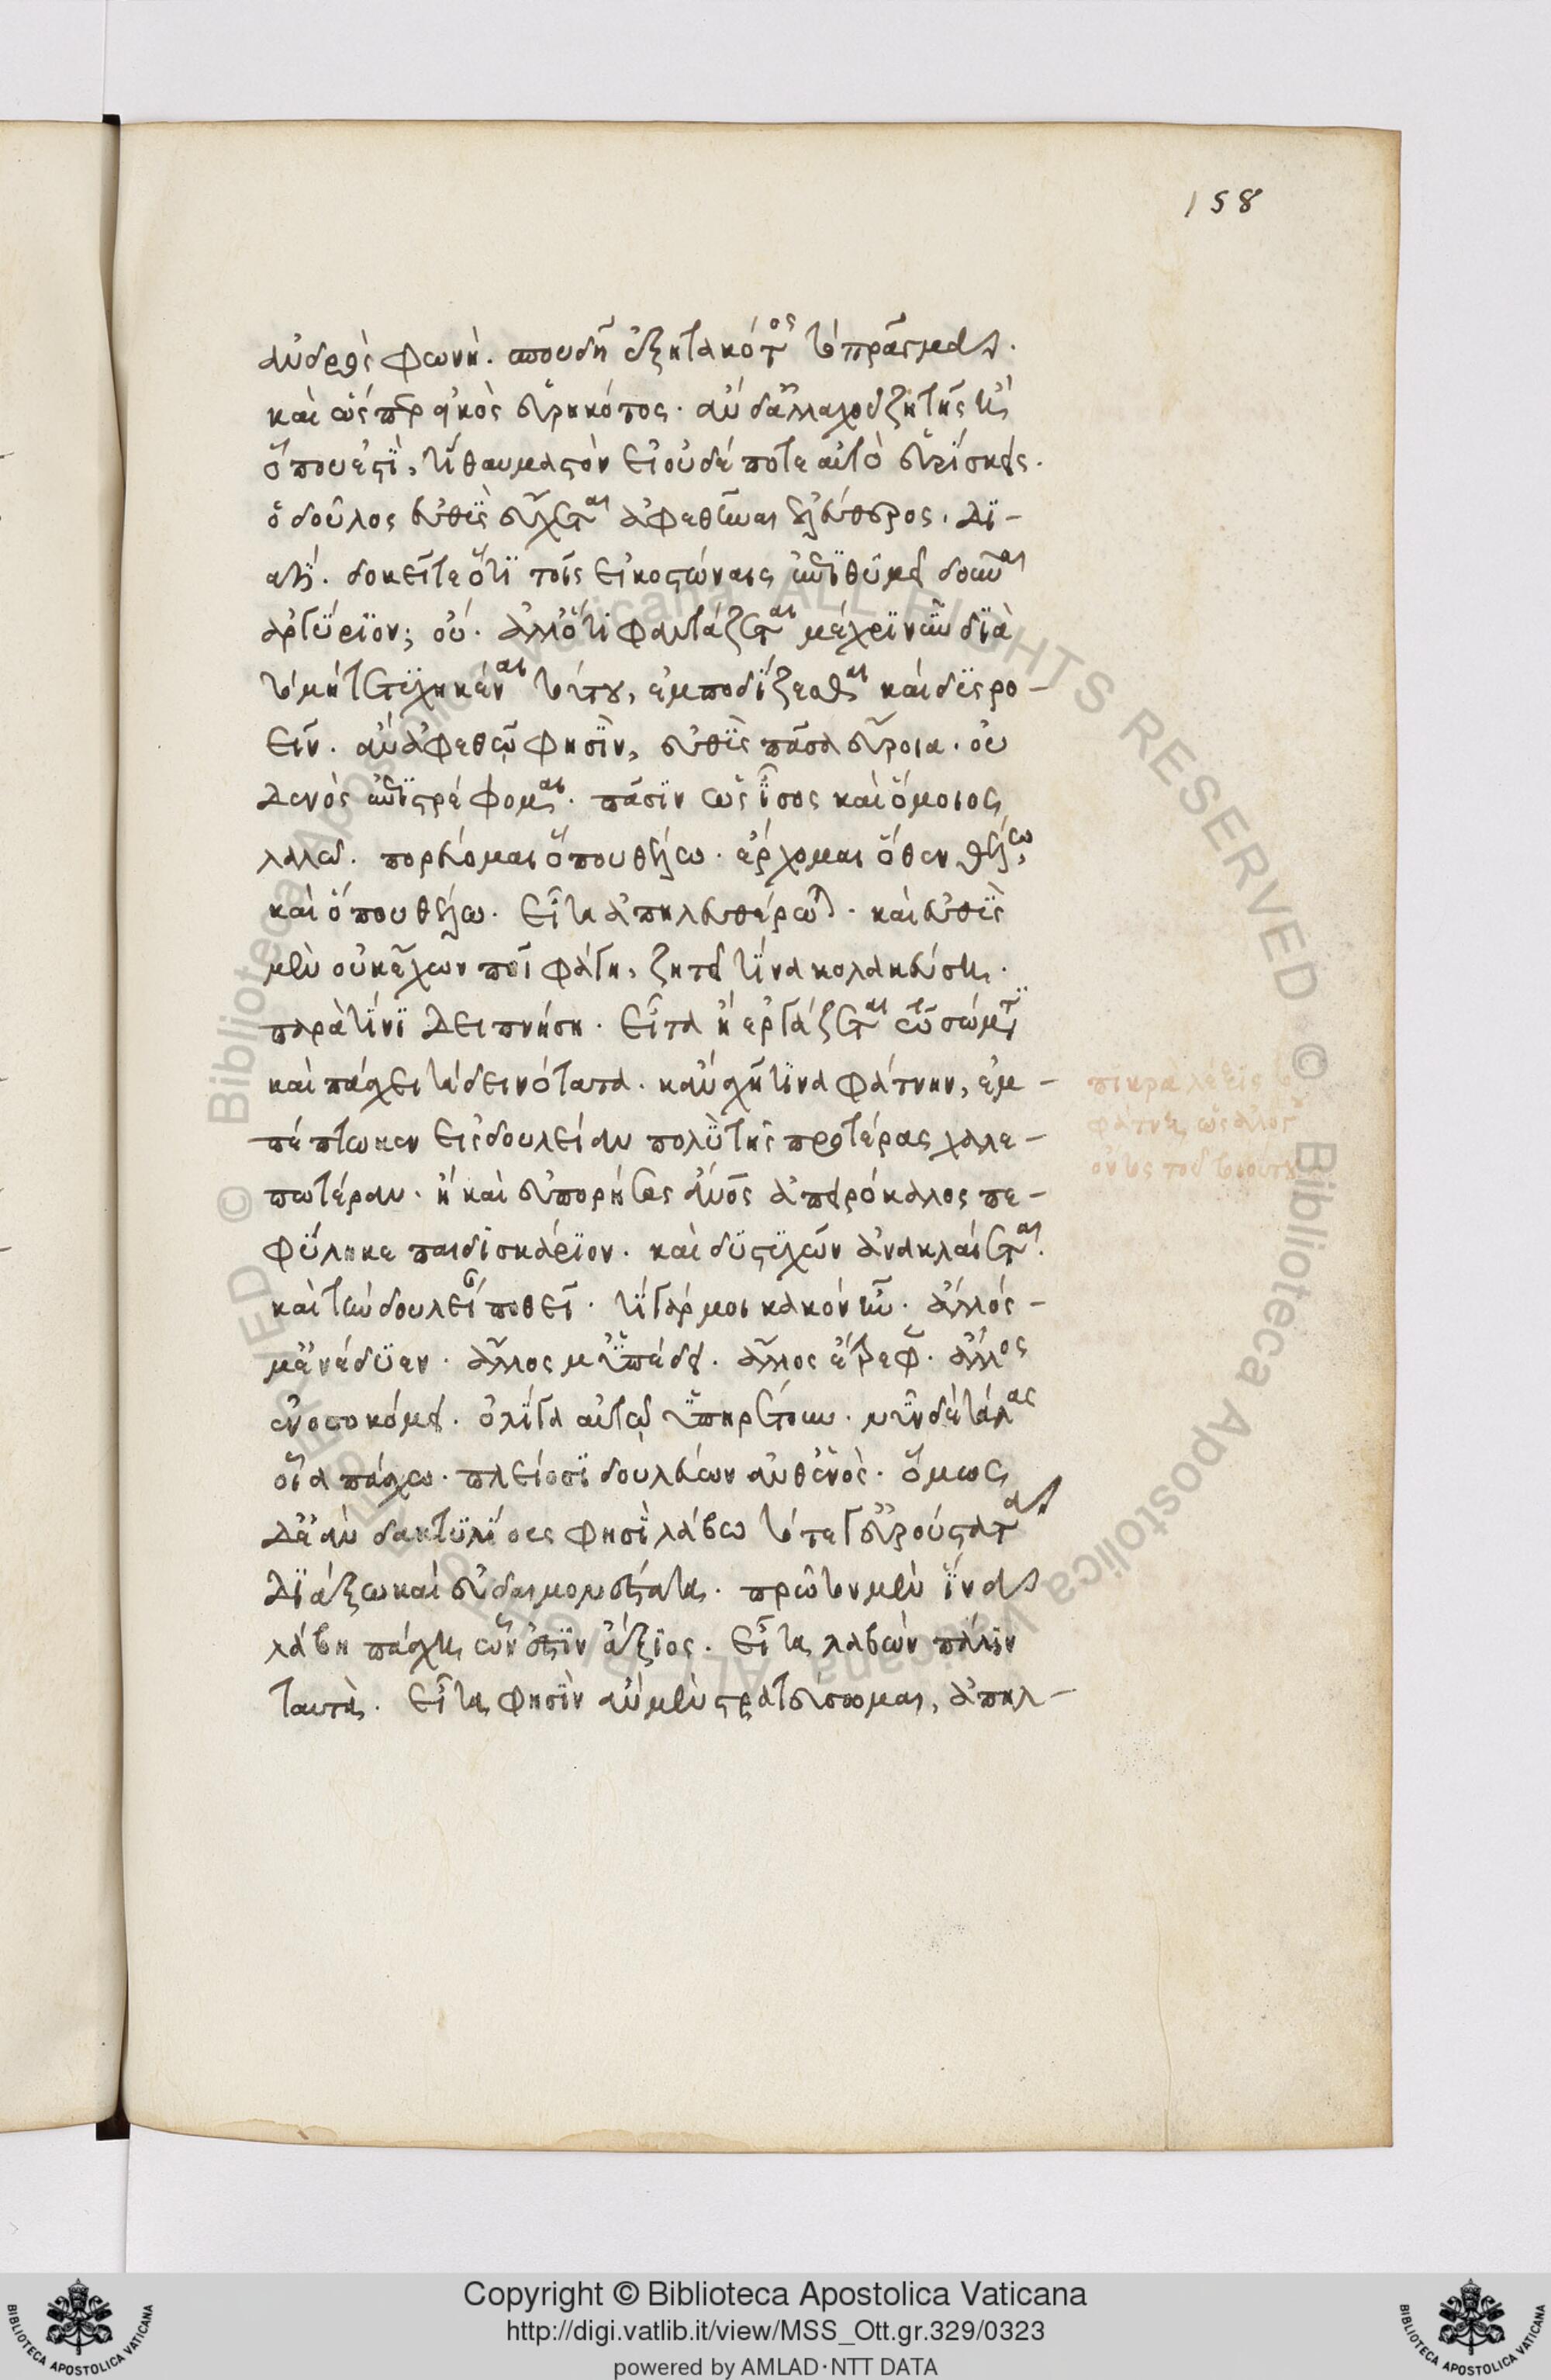 158
ἀνδρὸς φωνὴ. σπουδῆ ἐξητακότος τὸ πρᾶγμα.
καὶ ὥσπερ εἰκὸς εὑρηκότος. ἂν δ' ἀλλαχοῦ ζητῆς ἢ
ὅπου ἐστϊ, τί θαυμαστὸν εἰ οὐδέποτε αὐτὸ εὑρίσκεις.
ὁ δοῦλος εὐθὺς εὔχεται ἀφεθῆναι ἐλεύθερος. δϊ-
ατί. δοκεῖτε ὅτϊ τοῖς εἰκοστώναις ἐπϊθυμεῖ δοῦναι
ἀργύριον; οὔ. ἀλλ' ὅτι φαντάζεται μέχρϊ νῦν δϊὰ
τὸ μὴ τετϋχηκέναι τούτου, ἐμποδίζεσθαι καὶ δϋσρο-
εῖν. ἂν ἀφεθῶ φησϊν, εὐθὺς πᾶσα εὔροια. οὐ
δενὸς ἐπϊστρέφομαι. πᾶσϊν ὡς ἴσος καὶ ὅμοιος
λαλῶ. πορεύομαι ὅπου θέλω. ἔρχομαι ὅθεν θέλω,
καὶ ὅπου θέλω. εἶτα ἀπηλευθέρωται. καὶ εὐθὺς
μὲν οὐκ ἔχων ποῖ φάγη, ζητεῖ τίνα κολακεύση.
παρὰ τίνϊ δειπνήση. εἶτα ἢ ἐργάζεται τῶ σώματϊ
καὶ πάσχει τὰ δεινότατα. κἂν σχῆ τινα φάτνην, ἐμ-
πέπτωκεν εἰς δουλείαν πολὺ τῆς προτέρας χαλε-
πωτέραν. ἢ καὶ εὐπορήσας ἄνος ἀπειρόκαλος πε-
φύληκε παιδισκάριον. καὶ δϋστϋχῶν ἀνακλαίεται.
καὶ τὴν δουλείαν ποθεῖ. τί γάρ μοι κακὸν ἦν. ἄλλός-
μ' ἐνέδϋεν. ἄλλος μ' ὑπέδει. ἄλλος ἔτρεφεν. ἄλλος
ἐνοσοκόμει. ὀλίγα αὐτῶ ὑπηρέτουν. νῦν δὲ τάλας
οἷα πάσχω. πλείοσϊ δουλεύων ἀνθ' ἑνὸς. ὅμως
δὲ ἂν δακτυλίους φησϊ λάβω τότε γ' εὐρούστατα
δϊάξω καὶ εὐδαιμονέστατα. πρῶτον μὲν ἵνα
λάβη πάσχει, ὧν ἐστϊν ἄξϊος. εἶτα, λαβὼν πάλϊν
ταυτὰ. εἶτα, φησϊν ἂν μὲν στρατεύσωμαι, ἀπηλ-
πικρὰ λέξις τὸ
φάτνη, ὡς ἀλόγου
ὄντος τοῦ τοιούτου